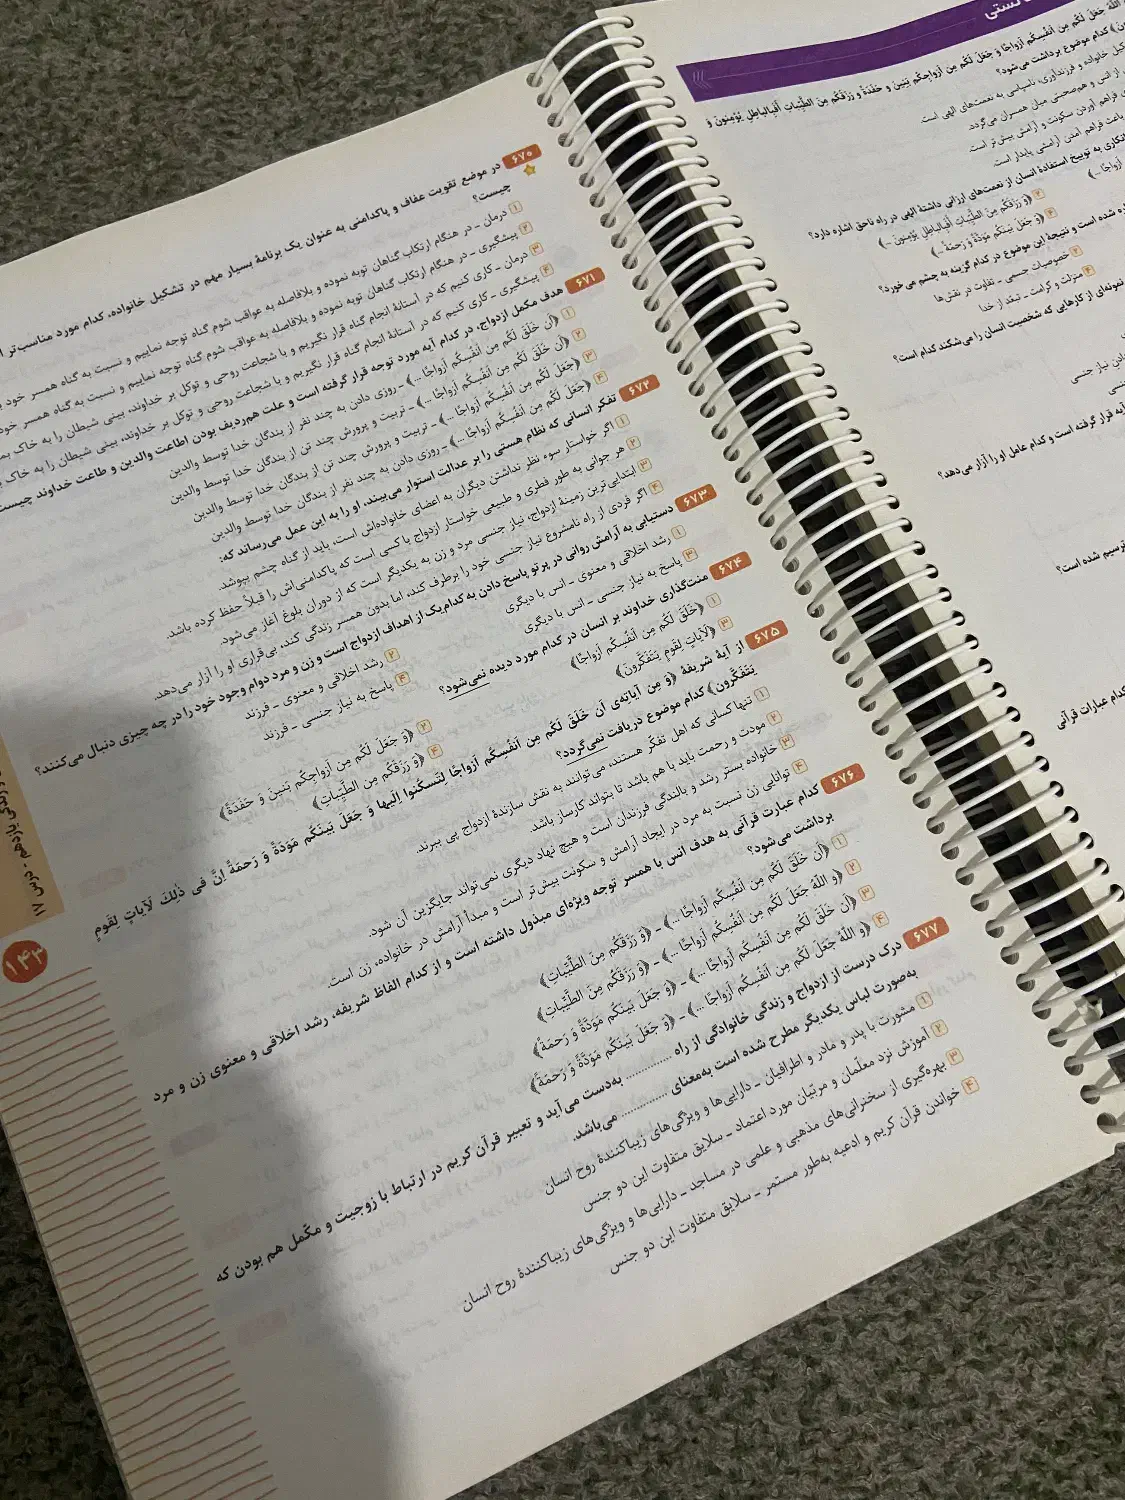 ۶۷۰ در موضع تقویت عفاف و پاکدامنی به عنوان یک برنامهٔ بسیار مهم در تشکیل خانواده، کدام مورد مناسب‌تر
چیست؟
۱ درمان ـ در هنگام ارتکاب گناهان توبه نموده و بلافاصله به عواقب شوم گناه توجه نماییم و نسبت به گناه همسر خود
۲ پیشگیری ـ در هنگام ارتکاب گناهان توبه نموده و بلافاصله به عواقب شوم گناه توجه نماییم و نسبت به گناه همسر خود
۳ درمان ـ کاری کنیم که در آستانهٔ انجام گناه قرار نگیریم و با شجاعت روحی و توکل بر خداوند، بینی شیطان را به خاک
۴ پیشگیری ـ کاری کنیم که در آستانهٔ انجام گناه قرار نگیریم و با شجاعت روحی و توکل بر خداوند، بینی شیطان را به خاک
۶۷۱ هدف مکمل ازدواج، در کدام آیه مورد توجه قرار گرفته است و علت هم‌ردیف بودن اطاعت والدین و طاعت خداوند چیست
۱ ﴿اَن خَلَقَ لَکُم مِن اَنفُسِکُم اَزواجًا ...﴾ ـ روزی دادن به چند نفر از بندگان خدا توسط والدین
۲ ﴿اَن خَلَقَ لَکُم مِن اَنفُسِکُم اَزواجًا ...﴾ ـ تربیت و پرورش چند تن از بندگان خدا توسط والدین
۳ ﴿جَعَلَ لَکُم مِن اَنفُسِکُم اَزواجًا ...﴾ ـ تربیت و پرورش چند تن از بندگان خدا توسط والدین
۴ ﴿جَعَلَ لَکُم مِن اَنفُسِکُم اَزواجًا ...﴾ ـ روزی دادن به چند نفر از بندگان خدا توسط والدین
۶۷۲ تفکر انسانی که نظام هستی را بر عدالت استوار می‌بیند، او را به این عمل می‌رساند که:
۱ اگر خواستار سوء نظر نداشتن دیگران به اعضای خانواده‌اش است، باید از گناه چشم بپوشد.
۲ هر جوانی به طور فطری و طبیعی خواستار ازدواج با کسی است که پاکدامنی‌اش را قبلاً حفظ کرده باشد.
۳ ابتدایی‌ترین زمینهٔ ازدواج، نیاز جنسی مرد و زن به یکدیگر است که از دوران بلوغ آغاز می‌شود.
۴ اگر فردی از راه نامشروع نیاز جنسی خود را برطرف کند، اما بدون همسر زندگی کند، بی‌قراری او را آزار می‌دهد.
۶۷۳ دستیابی به آرامش روانی در پرتو پاسخ دادن به کدام‌یک از اهداف ازدواج است و زن و مرد دوام وجود خود را در چه چیزی دنبال می‌کنند؟
۱ رشد اخلاقی و معنوی ـ انس با دیگری
۲ رشد اخلاقی و معنوی ـ فرزند
۳ پاسخ به نیاز جنسی ـ انس با دیگری
۴ پاسخ به نیاز جنسی ـ فرزند
۶۷۴ منت‌گذاری خداوند بر انسان در کدام مورد دیده نمی‌شود؟
۱ ﴿خَلَقَ لَکُم مِن اَنفُسِکُم اَزواجًا﴾
۲ ﴿وَ جَعَلَ لَکُم مِن اَزواجِکُم بَنینَ وَ حَفَدَةً﴾
۳ ﴿لَآیاتٍ لِقَومٍ یَتَفَکَّرونَ﴾
۴ ﴿وَ رَزَقَکُم مِنَ الطَّیِّباتِ﴾
۶۷۵ از آیهٔ شریفهٔ ﴿وَ مِن آیاتِهی اَن خَلَقَ لَکُم مِن اَنفُسِکُم اَزواجًا لِتَسکُنوا اِلَیها وَ جَعَلَ بَینَکُم مَوَدَّةً وَ رَحمَةً اِنَّ فی ذٰلِكَ لَآیاتٍ لِقَومٍ
یَتَفَکَّرون﴾ کدام موضوع دریافت نمی‌گردد؟
۱ تنها کسانی که اهل تفکّر هستند، می‌توانند به نقش سازندهٔ ازدواج پی ببرند.
۲ مودت و رحمت باید با هم باشد تا بتواند کارساز باشد.
۳ خانواده بستر رشد و بالندگی فرزندان است و هیچ نهاد دیگری نمی‌تواند جایگزین آن شود.
۴ توانایی زن نسبت به مرد در ایجاد آرامش و سکونت بیش‌تر است و مبدأ آرامش در خانواده، زن است.
۶۷۶ کدام عبارت قرآنی به هدف انس با همسر توجه ویژه‌ای مبذول داشته است و از کدام الفاظ شریفه، رشد اخلاقی و معنوی زن و مرد
برداشت می‌شود؟
۱ ﴿اَن خَلَقَ لَکُم مِن اَنفُسِکُم اَزواجًا ...﴾ ـ ﴿وَ رَزَقَکُم مِنَ الطَّیِّباتِ﴾
۲ ﴿وَ اللّٰهُ جَعَلَ لَکُم مِن اَنفُسِکُم اَزواجًا ...﴾ ـ ﴿وَ رَزَقَکُم مِنَ الطَّیِّباتِ﴾
۳ ﴿اَن خَلَقَ لَکُم مِن اَنفُسِکُم اَزواجًا ...﴾ ـ ﴿وَ جَعَلَ بَینَکُم مَوَدَّةً وَ رَحمَةً﴾
۴ ﴿وَ اللّٰهُ جَعَلَ لَکُم مِن اَنفُسِکُم اَزواجًا ...﴾ ـ ﴿وَ جَعَلَ بَینَکُم مَوَدَّةً وَ رَحمَةً﴾
۶۷۷ درک درست از ازدواج و زندگی خانوادگی از راه ............ به‌دست می‌آید و تعبیر قرآن کریم در ارتباط با زوجیت و مکمّل هم بودن که
به‌صورت لباس یکدیگر مطرح شده است به‌معنای ............ می‌باشد.
۱ مشورت با پدر و مادر و اطرافیان ـ دارایی‌ها و ویژگی‌های زیباکنندهٔ روح انسان
۲ آموزش نزد معلّمان و مربّیان مورد اعتماد ـ سلایق متفاوت این دو جنس
۳ بهره‌گیری از سخنرانی‌های مذهبی و علمی در مساجد ـ دارایی‌ها و ویژگی‌های زیباکنندهٔ روح انسان
۴ خواندن قرآن کریم و ادعیه به‌طور مستمر ـ سلایق متفاوت این دو جنس
زندگی یازدهم ـ درس ۱۷
۱۴۳
اللّٰهُ جَعَلَ لَکُم مِن اَنفُسِکُم اَزواجًا وَ جَعَلَ لَکُم مِن اَزواجِکُم بَنینَ وَ حَفَدَةً وَ رَزَقَکُم مِنَ الطَّیِّباتِ اَفَبِالباطِلِ یُؤمِنونَ وَ
کدام موضوع برداشت می‌شود؟
خانواده و فرزندآوری، ناسپاسی به نعمت‌های الهی است.
از انس و هم‌صحبتی میان همسران می‌گردد.
فراهم آوردن سکونت و آرامش بیش‌تر است.
باعث فراهم آمدن آرامشی پایدار است.
انکاری به توبیخ استفادهٔ انسان از نعمت‌های ارزانی داشتهٔ الهی در راه ناحق اشاره دارد؟
۲ ﴿وَ رَزَقَکُم مِنَ الطَّیِّباتِ اَفَبِالباطِلِ یُؤمِنونَ ...﴾
۴ ﴿وَ جَعَلَ بَینَکُم مَوَدَّةً وَ رَحمَةً ...﴾
شده است و نتیجهٔ این موضوع در کدام گزینه به چشم می‌خورد؟
۲ خصوصیات جسمی ـ تفاوت در نقش‌ها
۴ منزلت و کرامت ـ تبعّد از خدا
نمونه‌ای از کارهایی که شخصیت انسان را می‌شکند کدام است؟
نیاز جنسی
آیه قرار گرفته است و کدام عامل او را آزار می‌دهد؟
ترسیم شده است؟
کدام عبارات قرآنی